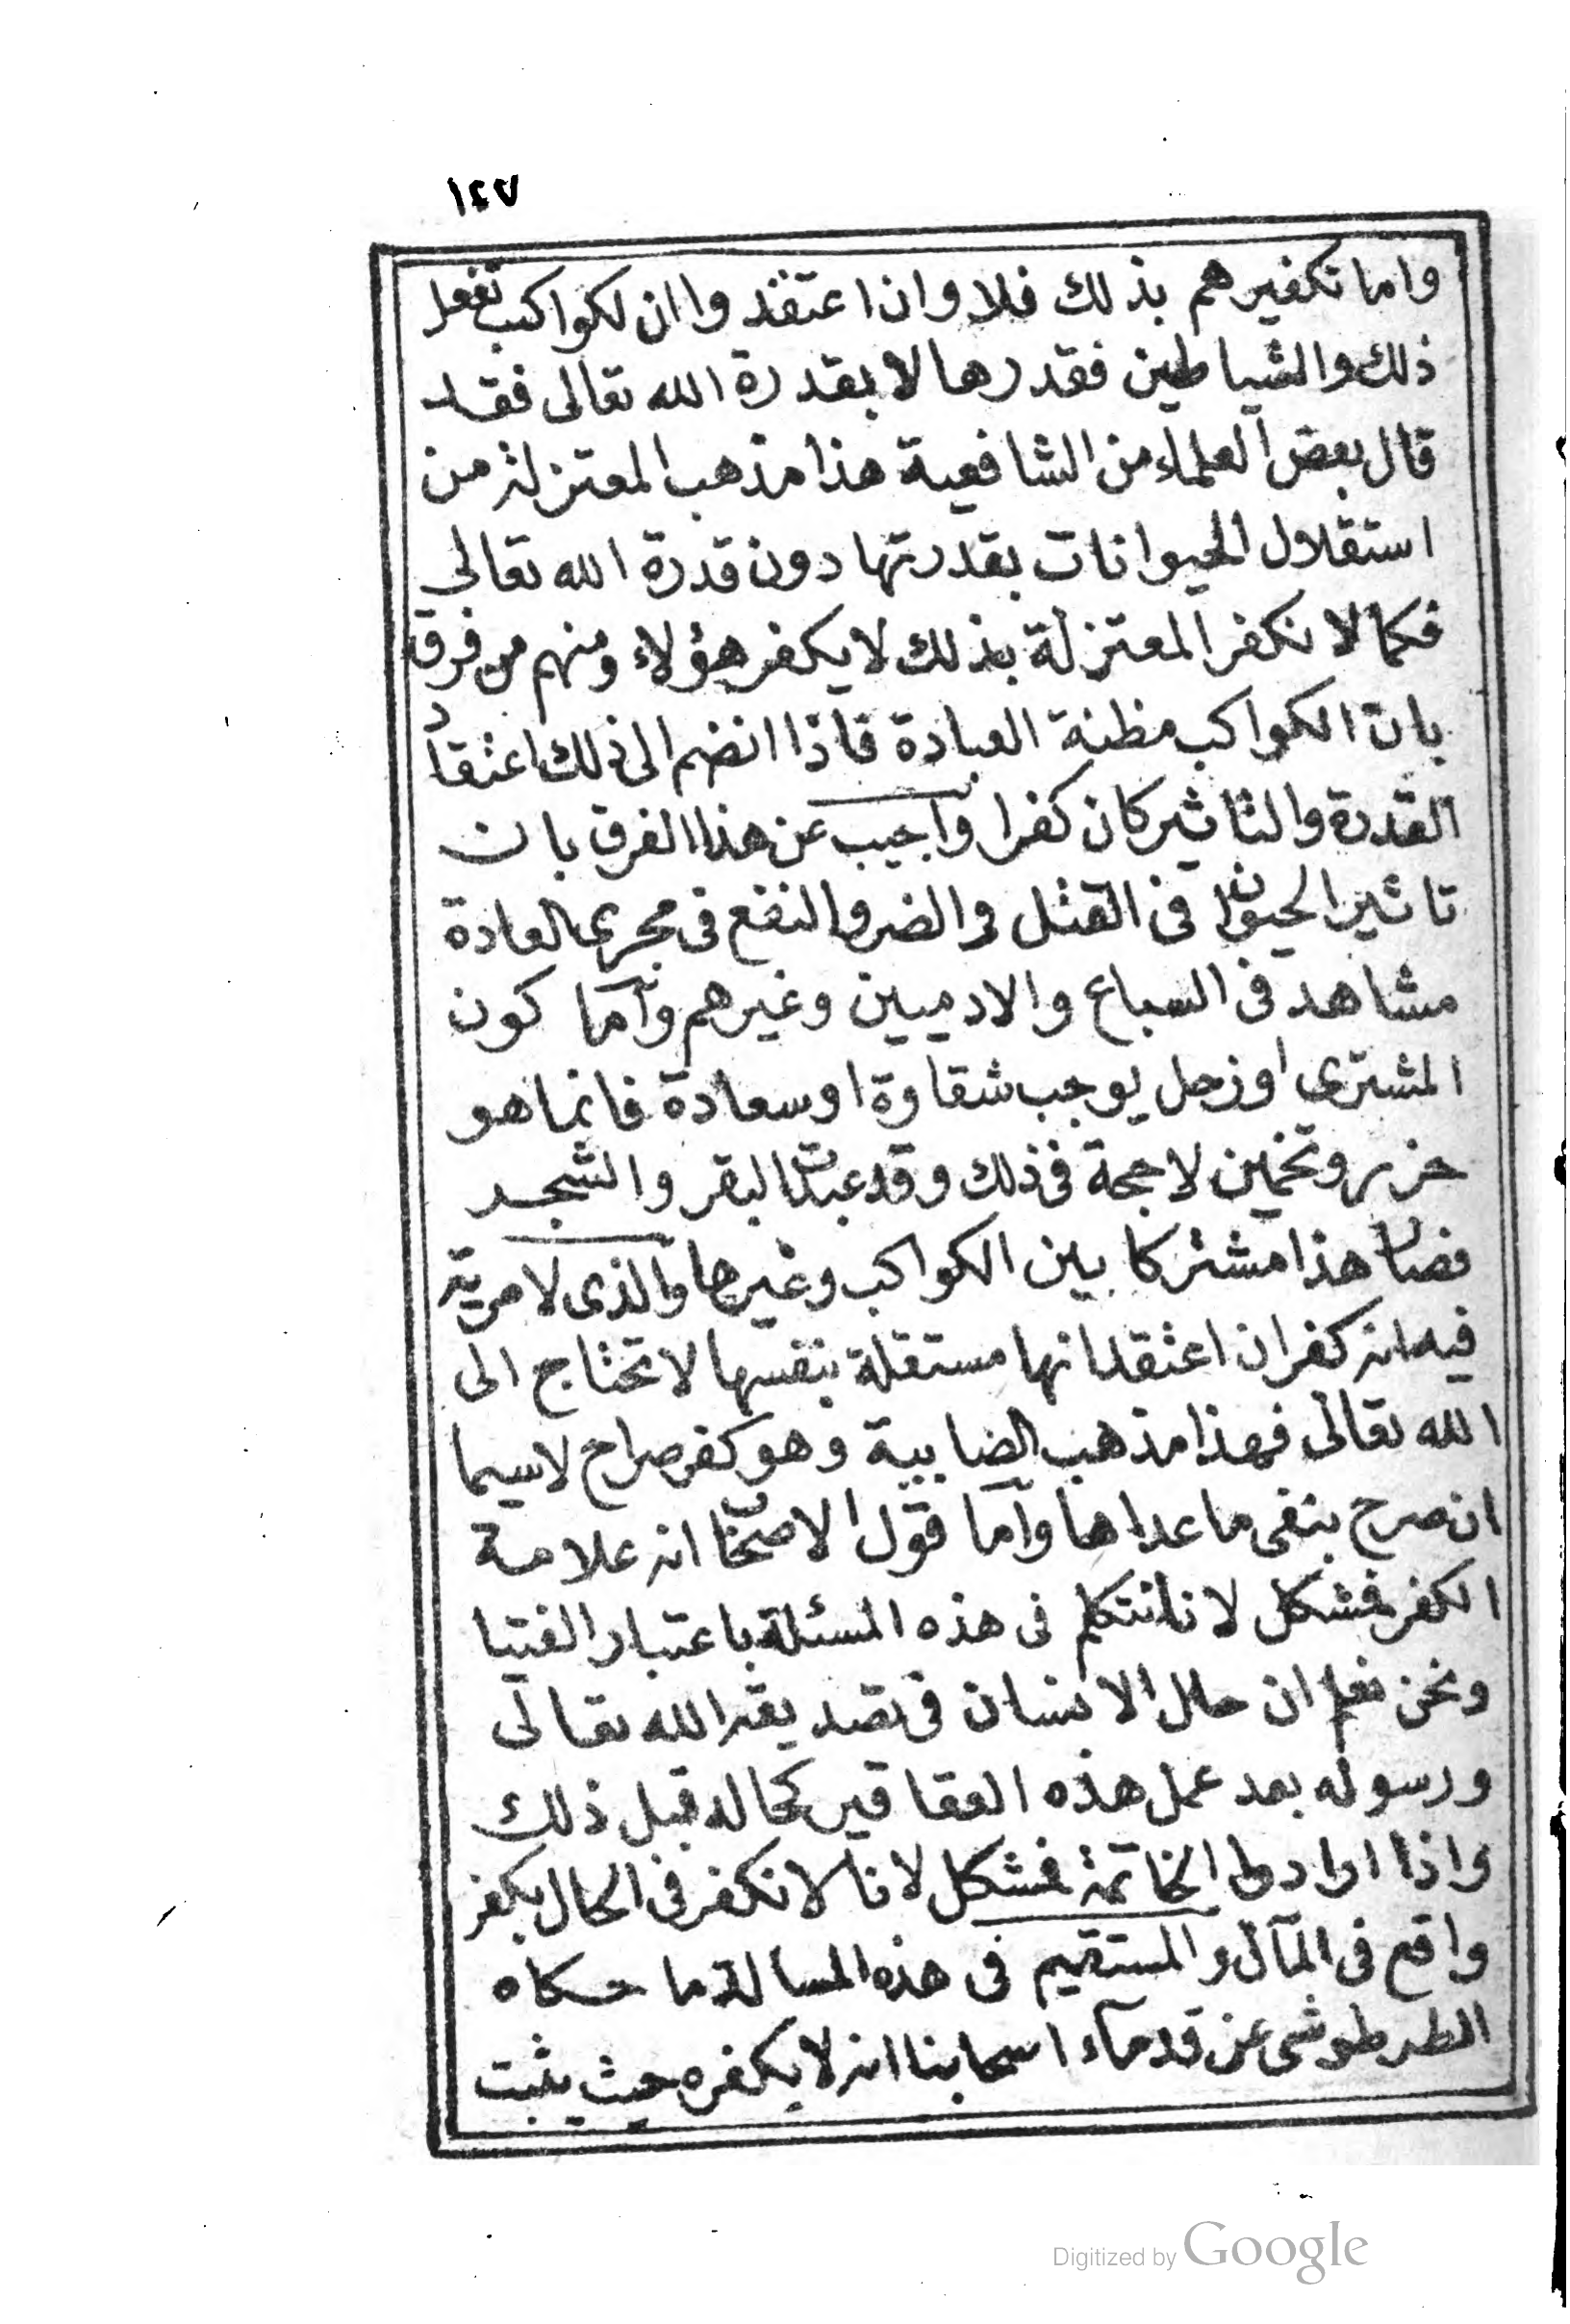 ١٤٧
واما تكفيرهم بذلك فلا وان اعتقدوا ان لكواكب تفعل
ذلك والشياطين فقدرها لا بقدرة الله تعالى فقد
قال بعض العلماء من الشافعية هذا مذهب المعتزلة من
استقلال الحيوانات بقدرتها دون قدرة الله تعالى
فكما لا نكفر المعتزلة بذلك لا يكفر هؤلاء ومنهم من فرق
بان الكواكب مظنة العبادة فاذا انضم الى ذلك اعتقاد
القدرة والتاثير كان كفرا واجيب عن هذا الفرق بان
تاثير الحيوان في القتل والضر والنفع في مجرى العادة
مشاهد في السباع والادميين وغيرهم واما كون
المشترى او زحل يوجب شقاوة او سعادة فانما هو
حزر وتخمين لا حجة في ذلك وقد عبدت البقر والشجر
فصار هذا مشتركا بين الكواكب وغيرها والذى لا مرية
فيه انه كفر ان اعتقد انها مستقلة بنفسها لا تحتاج الى
الله تعالى فهذا مذهب الضابية وهو كفر صراح لاسيما
ان صرح بنفى ما عداها واما قول الاصحاب انه علامة
الكفر فمشكل لانا نتكلم في هذه المسئلة باعتبار الفتيا
ونحن نعلم ان حال الانسان في تصديقه الله تعالى
ورسوله بعد عمل هذه العقاقير كحاله قبل ذلك
واذا ارادوا الخاتمة فمشكل لانا لا نكفر في الحال بكفر
واقع في المآل والمستقيم في هذه المسالة ما حكاه
الطرطوشى عن قدمآء اسحابنا انه لا يكفره حيث يثبت
Digitized by Google